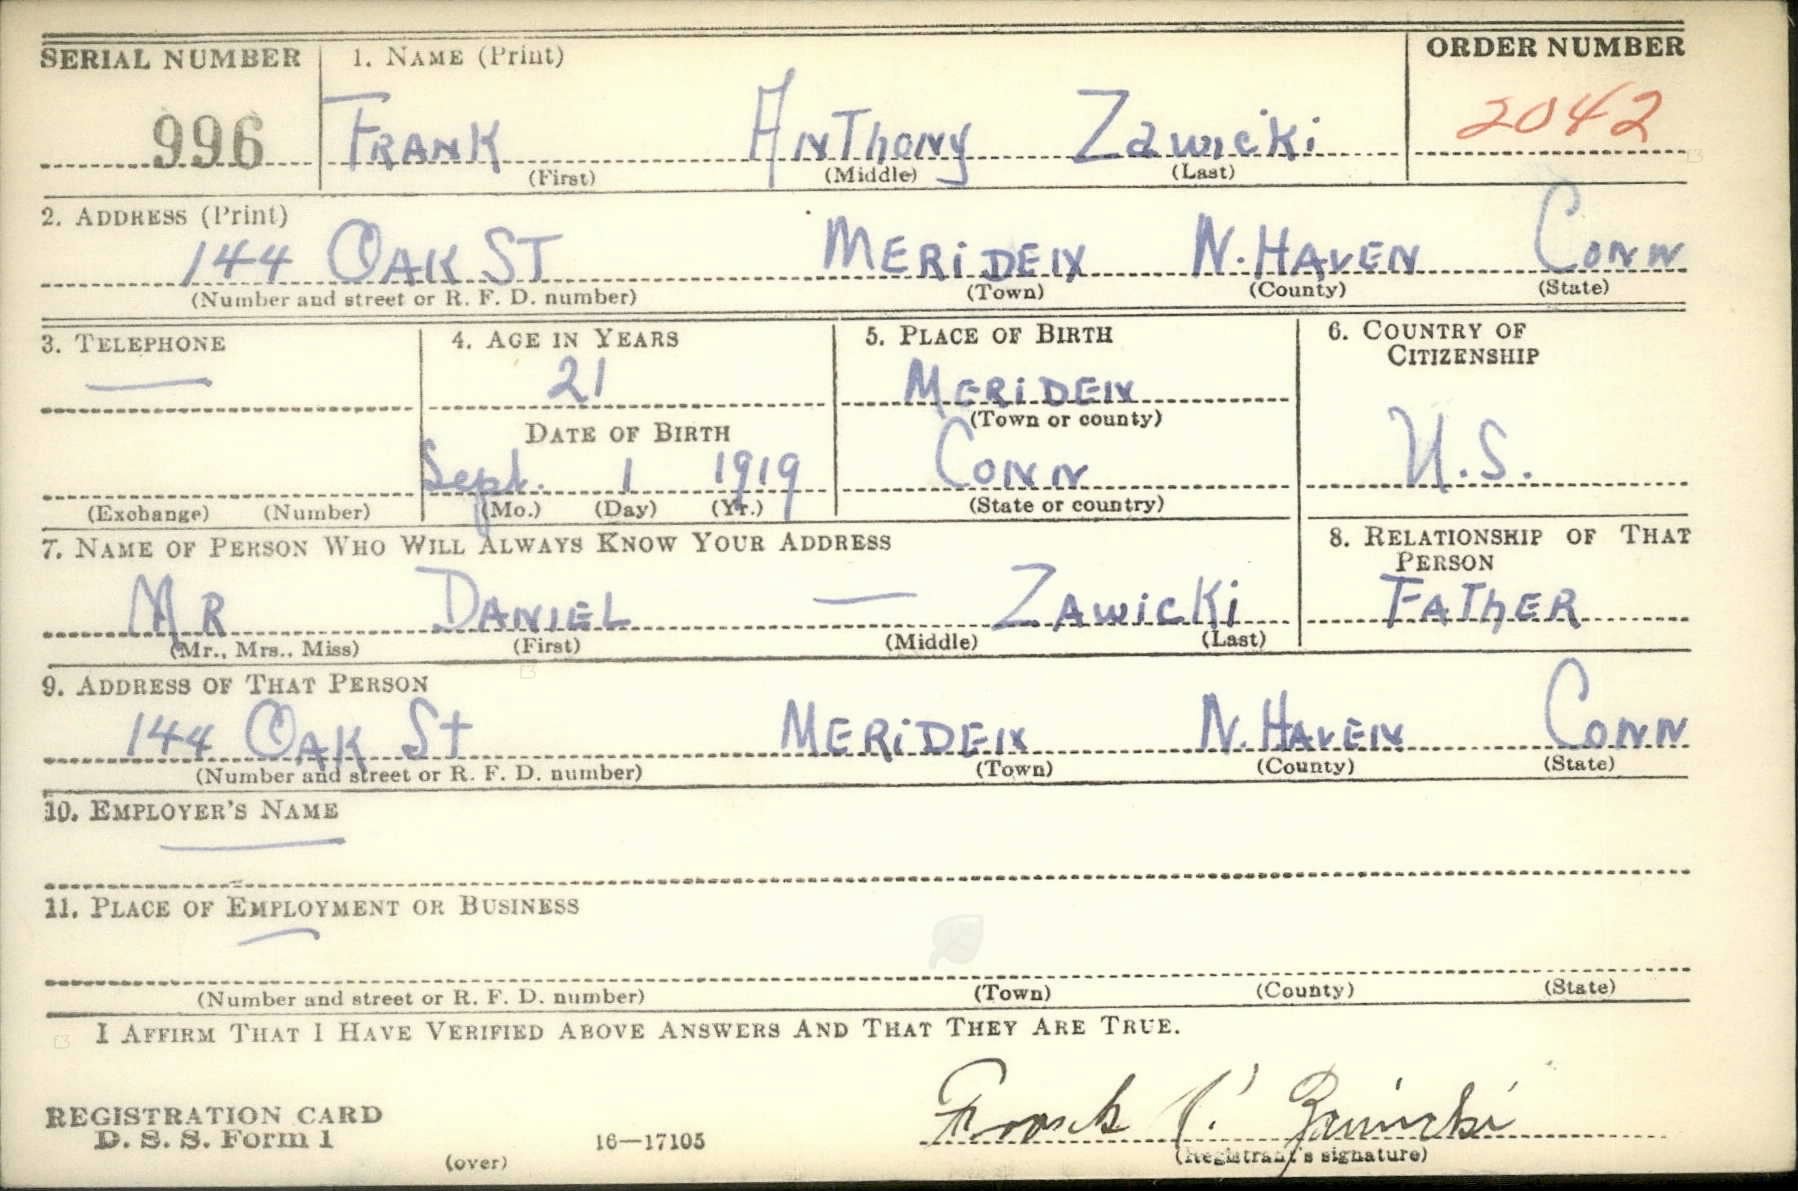 SERIAL NUMBER 1. NAME (Print) ORDER NUMBER
996 FRANK ANThONY ZawicKi 2042
(First) (Middle) (Last)
2. ADDRESS (Print)
144 OAK ST MERiDEN N. HAVEN CONN
(Number and street or R. F. D. number) (Town) (County) (State)
3. TELEPHONE 4. AGE IN YEARS 5. PLACE OF BIRTH 6. COUNTRY OF CITIZENSHIP
— 21 MERiDEN
(Town or county)
DATE OF BIRTH
Sept. 1 1919 CONN U.S.
(Exchange) (Number) (Mo.) (Day) (Yr.) (State or country)
7. NAME OF PERSON WHO WILL ALWAYS KNOW YOUR ADDRESS 8. RELATIONSHIP OF THAT PERSON
MR DANIEL — ZAWicKi FAThER
(Mr., Mrs., Miss) (First) (Middle) (Last)
9. ADDRESS OF THAT PERSON
144 OAK St MERiDEN N. HAVEN CONN
(Number and street or R. F. D. number) (Town) (County) (State)
10. EMPLOYER'S NAME
—
11. PLACE OF EMPLOYMENT OR BUSINESS
—
(Number and street or R. F. D. number) (Town) (County) (State)
I AFFIRM THAT I HAVE VERIFIED ABOVE ANSWERS AND THAT THEY ARE TRUE.
REGISTRATION CARD
D. S. S. Form 1 16—17105 Frank Zawicki
(over) (Registrant's signature)